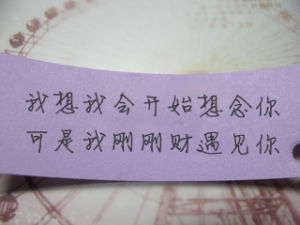 我想我会开始想念你
可是我刚刚财遇见你